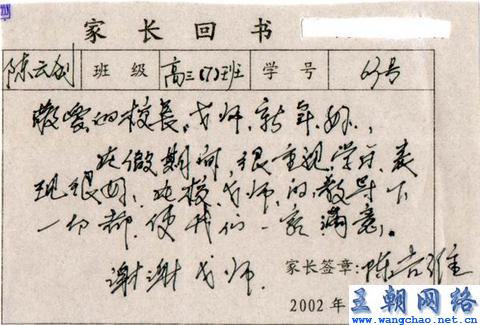 家长回书
陈云彪 班级 高三(7)班 学号 63号
敬爱的校长、老师，新年好，
在做期间，很重视学习，表
现很好，在校老师的教导下
一切都使我们一家满意。
谢谢老师。
家长签章：陈吉维
2002年
王朝网络
www.wangchao.net.cn